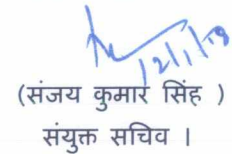 12/1/18
(संजय कुमार सिंह )
संयुक्त सचिव ।